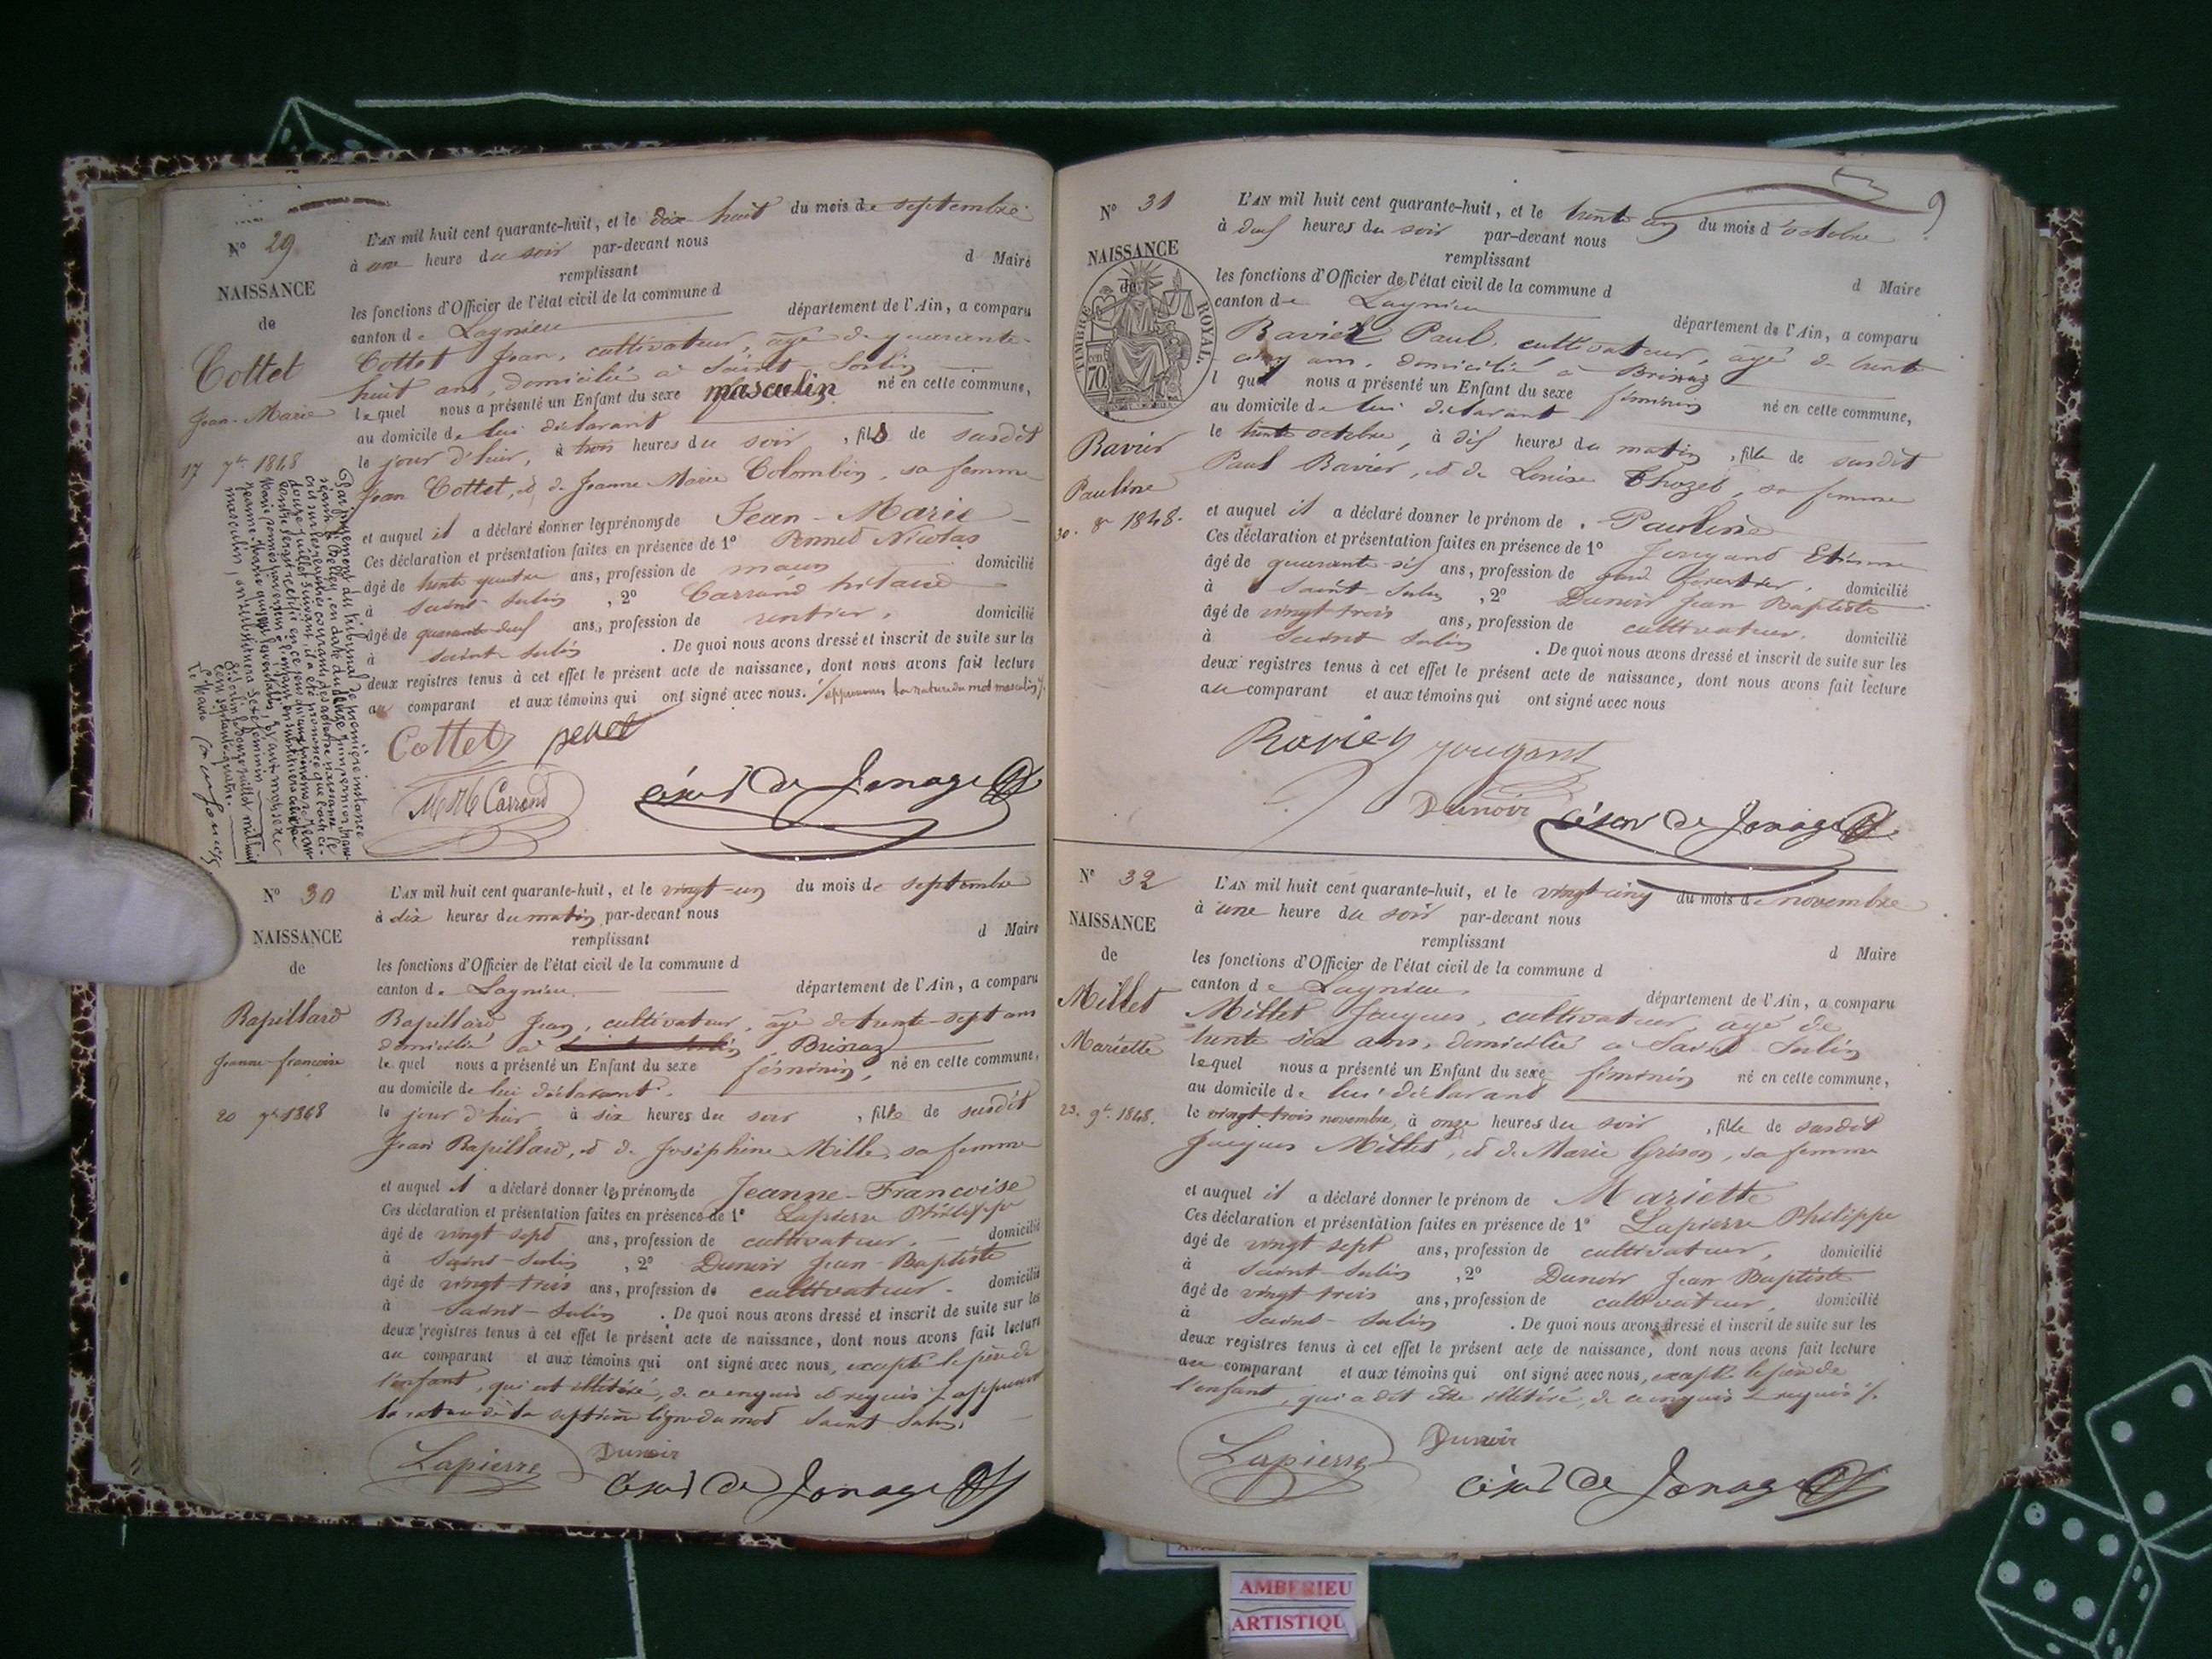 N° 29
NAISSANCE
de
Cottet
Jean-Marie
17 7bre 1848
L'AN mil huit cent quarante-huit, et le dix huit du mois de septembre
à une heure du soir par-devant nous
d Maire
remplissant
les fonctions d'Officier de l'état civil de la commune d
canton de Lagnieu département de l'Ain, a comparu
Cottet Jean, cultivateur, âgé de quarante-
huit ans, domicilié à Saint Sorlin
lequel nous a présenté un Enfant du sexe masculin né en cette commune,
au domicile de lui déclarant
le jour d'hier, à trois heures du soir, fils de susdit
Jean Cottet, et de Jeanne Marie Colombin, sa femme
et auquel il a déclaré donner les prénoms de Jean-Marie
Ces déclaration et présentation faites en présence de 1° Pennet Nicolas
âgé de trente quatre ans, profession de maçon domicilié
à Saint-Sulin, 2° Carrand
âgé de quarante-deux ans, profession de rentier, domicilié
à Saint-Sulin. De quoi nous avons dressé et inscrit de suite sur les
deux registres tenus à cet effet le présent acte de naissance, dont nous avons fait lecture
au comparant et aux témoins qui ont signé avec nous. approuvons la rature du mot masculin
Cottet penet
Carrand César de Jonage
Par jugement du tribunal de première instance
séant à Belley, en date du
N° 30
NAISSANCE
de
Bapillard
Jeanne-françoise
20 7bre 1848
L'AN mil huit cent quarante-huit, et le vingt-un du mois de septembre
à dix heures du matin par-devant nous
d Maire
remplissant
les fonctions d'Officier de l'état civil de la commune d
canton de Lagnieu département de l'Ain, a comparu
Bapillard Jean, cultivateur, âgé de trente-sept ans
domicilié à Brinaz
lequel nous a présenté un Enfant du sexe féminin, né en cette commune,
au domicile de lui déclarant.
le jour d'hier à six heures du soir, fille de susdit
Jean Bapillard, et de Joséphine Mille, sa femme
et auquel il a déclaré donner les prénoms de Jeanne-Françoise
Ces déclaration et présentation faites en présence de 1° Lapierre Philippe
âgé de vingt sept ans, profession de cultivateur, domicilié
à Saint-Sulin, 2° Dunoir Jean-Baptiste
âgé de vingt-trois ans, profession de cultivateur domicilié
à Saint-Sulin. De quoi nous avons dressé et inscrit de suite sur les
deux registres tenus à cet effet le présent acte de naissance, dont nous avons fait lecture
au comparant et aux témoins qui ont signé avec nous, excepté le père de
l'enfant, qui est illétéré, de ce enquis et requis
la rature de la septième ligne du mot Saint Sulin.
Lapierre Dunoir
César de Jonage
N° 31
NAISSANCE
de
TIMBRE ROYAL
70
Ravier
Pauline
30. 8re 1848.
9
L'AN mil huit cent quarante-huit, et le trente un du mois d'octobre
à deux heures du soir par-devant nous
d Maire
remplissant
les fonctions d'Officier de l'état civil de la commune d
canton de Lagnieu département de l'Ain, a comparu
Ravier Paul, cultivateur, âgé de trente
cinq ans, domicilié à Brinaz
lequel nous a présenté un Enfant du sexe féminin né en cette commune,
au domicile de lui déclarant
le trente octobre, à dix heures du matin, fille de susdit
Paul Ravier, et de Louise Chozet, sa femme
et auquel il a déclaré donner le prénom de Pauline
Ces déclaration et présentation faites en présence de 1° Jougand Etienne
âgé de quarante-six ans, profession de garde forestier, domicilié
à Saint-Sulin, 2° Dunoir Jean Baptiste
âgé de vingt-trois ans, profession de cultivateur, domicilié
à Saint-Sulin. De quoi nous avons dressé et inscrit de suite sur les
deux registres tenus à cet effet le présent acte de naissance, dont nous avons fait lecture
au comparant et aux témoins qui ont signé avec nous
Ravier jougand
Dunoir César de Jonage
N° 32
NAISSANCE
de
Millet
Mariette
23. 9bre 1848.
L'AN mil huit cent quarante-huit, et le vingt-cinq du mois de novembre
à une heure du soir par-devant nous
d Maire
remplissant
les fonctions d'Officier de l'état civil de la commune d
canton de Lagnieu, département de l'Ain, a comparu
Millet Jacques, cultivateur, âgé de
trente six ans, domicilié à Saint Sulin
lequel nous a présenté un Enfant du sexe féminin né en cette commune,
au domicile de lui déclarant
le vingt-trois novembre, à onze heures du soir, fille de susdit
Jacques Millet, et de Marie Grison, sa femme
et auquel il a déclaré donner le prénom de Mariette
Ces déclaration et présentation faites en présence de 1° Lapierre Philippe
âgé de vingt sept ans, profession de cultivateur, domicilié
à Saint-Sulin, 2° Dunoir Jean Baptiste
âgé de vingt-trois ans, profession de cultivateur, domicilié
à Saint-Sulin. De quoi nous avons dressé et inscrit de suite sur les
deux registres tenus à cet effet le présent acte de naissance, dont nous avons fait lecture
au comparant et aux témoins qui ont signé avec nous, excepté le père de
l'enfant, qui a dit être illétéré, de ce enquis et requis
Lapierre Dunoir
César de Jonage
AMBERIEU
ARTISTIQU